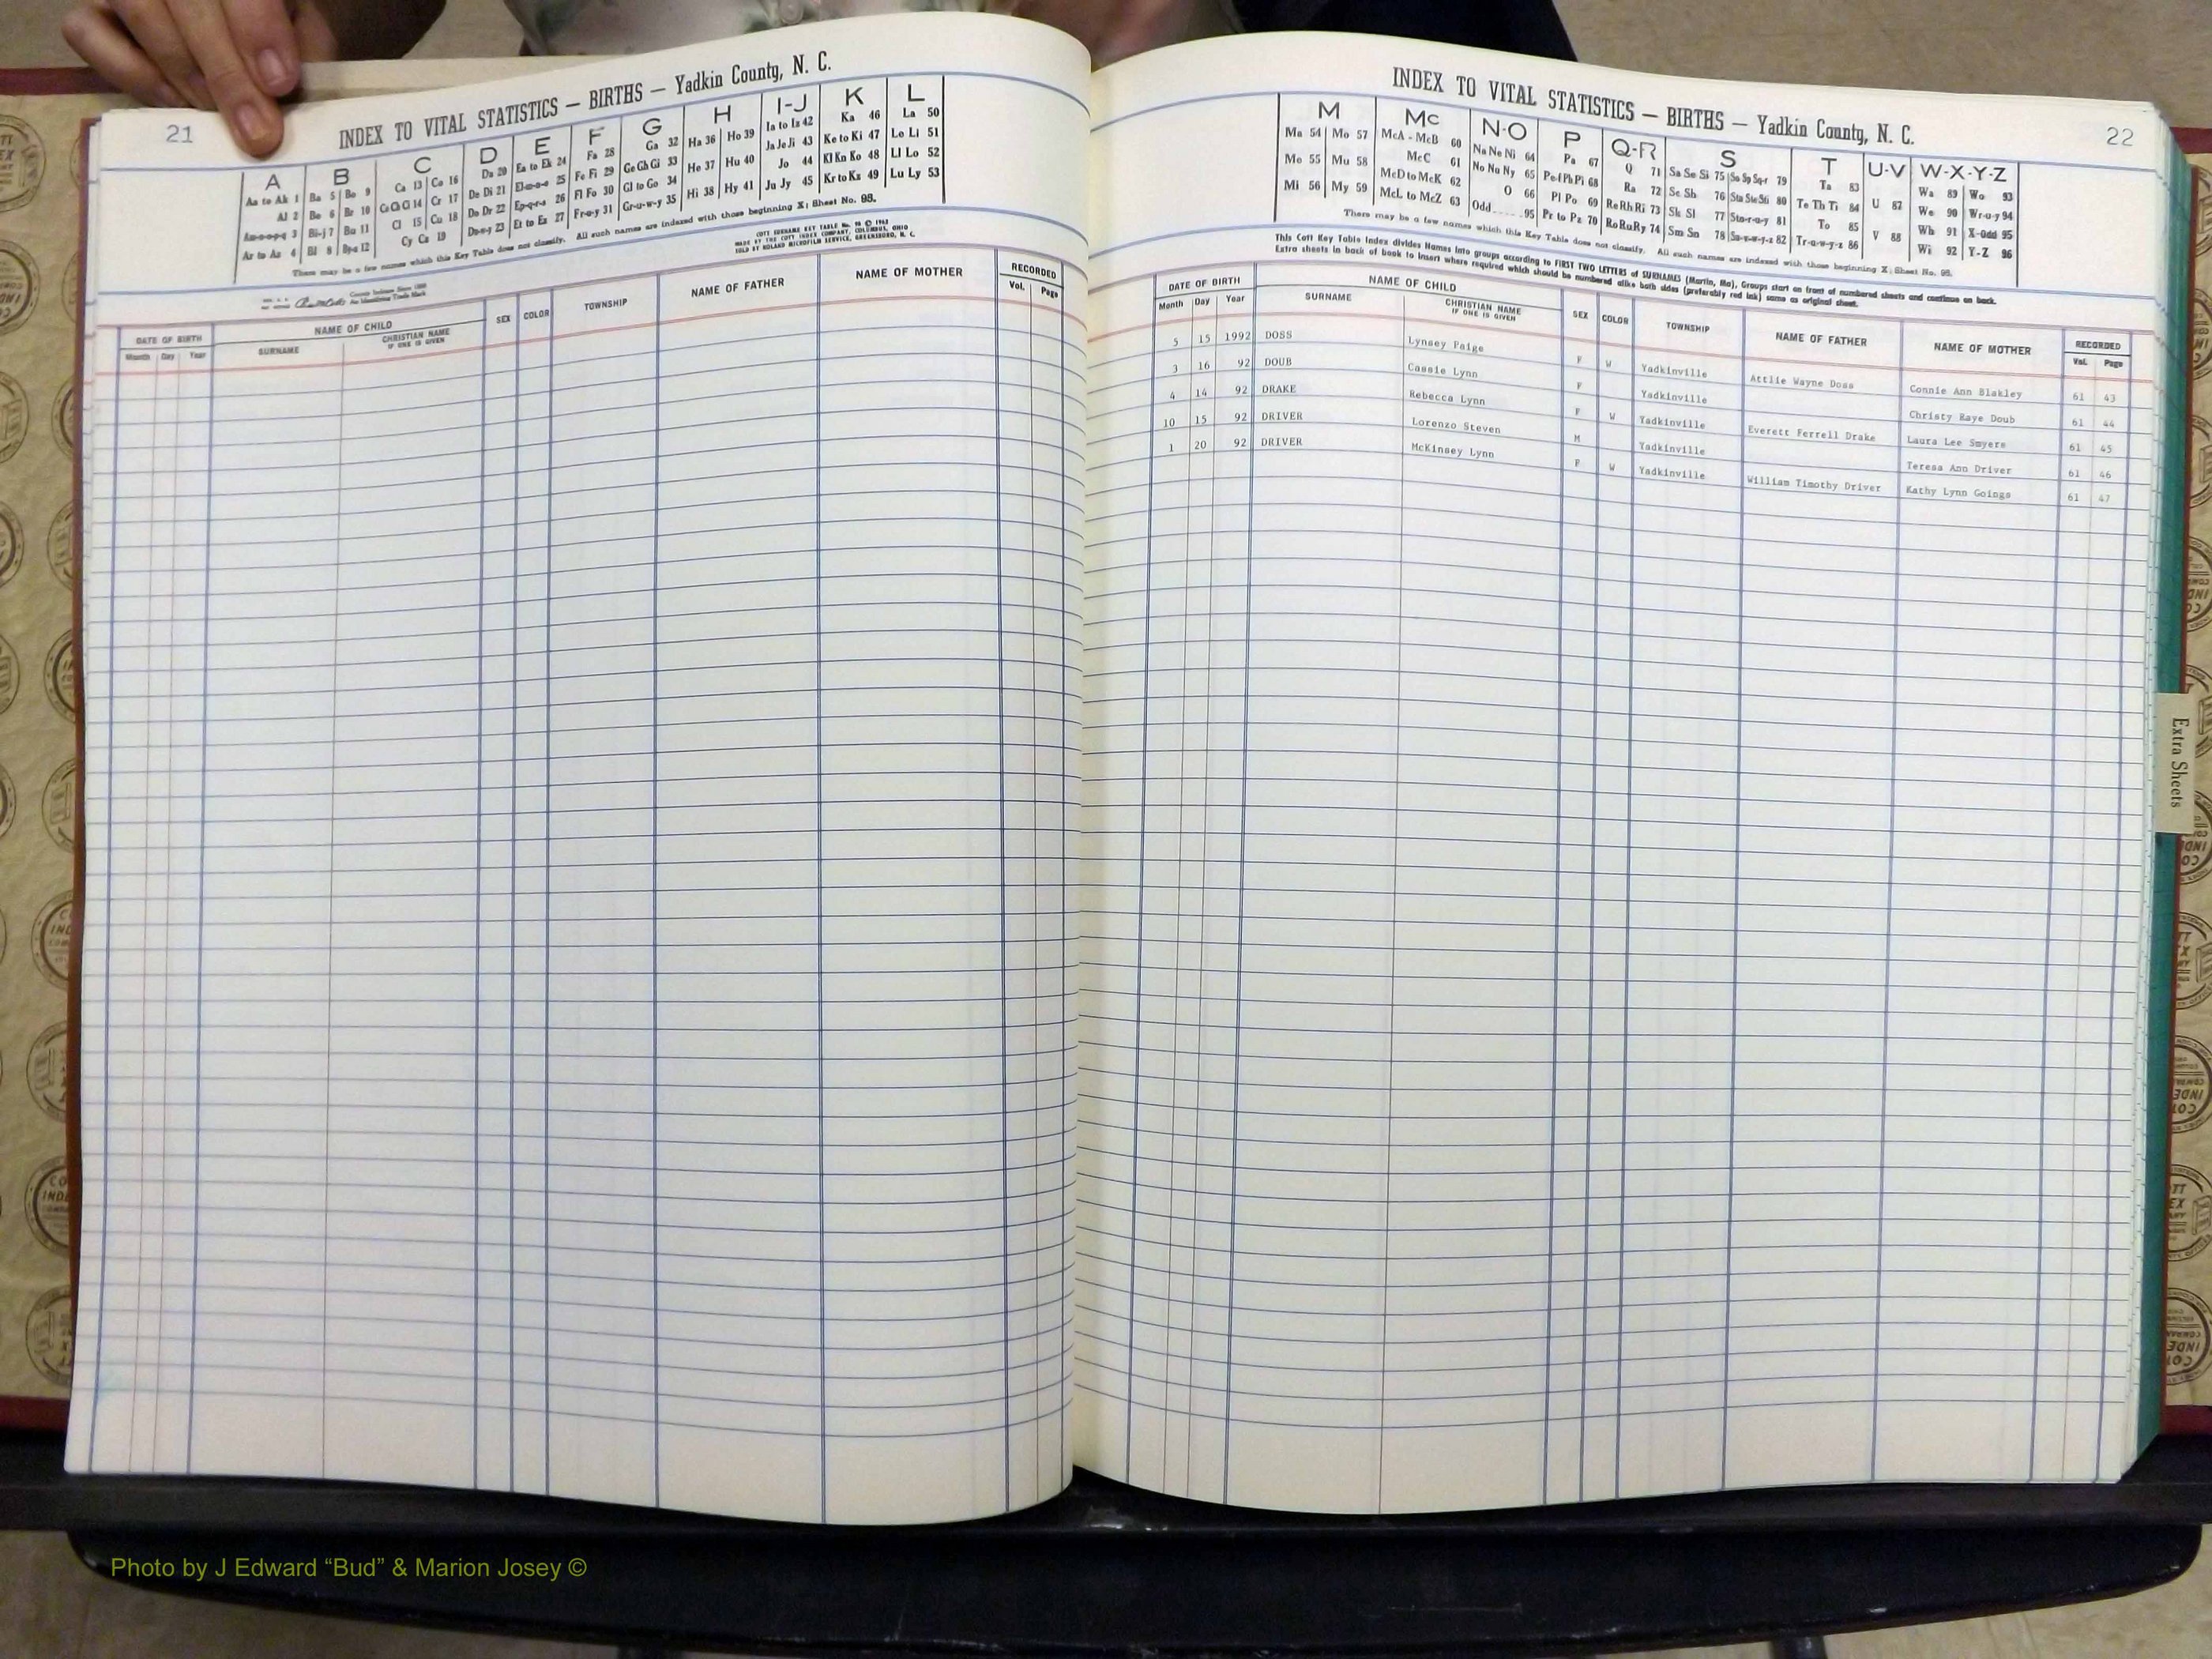 21
INDEX TO VITAL STATISTICS — BIRTHS — Yadkin County, N. C.
A B C D E F G H I-J K L
Aa to Ak 1 Ba 5 Bo 9 Ca 13 Co 16 Da 20 Ea to Ek 24 Fa 28 Ga 32 Ha 36 Ho 39 Ia to Iz 42 Ka 46 La 50
Al 2 Be 6 Br 10 Ce Ch Ci 14 Cr 17 De Di 21 El-m-n-o 25 Fe Fi 29 Ge Gh Gi 33 He 37 Hu 40 Ja Je Ji 43 Ke to Ki 47 Le Li 51
Am-n-o-p-q 3 Bi-j 7 Bu 11 Cl 15 Cu 18 Do Dr 22 Ep-q-r-s 26 Fl Fo 30 Gl to Go 34 Hi 38 Hy 41 Jo 44 Kl Kn Ko 48 Ll Lo 52
Ar to Az 4 Bl 8 By-z 12 Cy Cz 19 Du-w-y 23 Et to Ez 27 Fr-u-y 31 Gr-u-w-y 35 Ju Jy 45 Kr to Kz 49 Lu Ly 53
There may be a few names which this Key Table does not classify. All such names are indexed with those beginning X; Sheet No. 95.
COTT SURNAME KEY TABLE
MADE BY THE COTT INDEX COMPANY, COLUMBUS, OHIO
SOLD BY ROLAND MICROFILM SERVICE, GREENSBORO, N. C.
County Indexes Since 1888
An Identifying Trade Mark
DATE OF BIRTH NAME OF CHILD SEX COLOR TOWNSHIP NAME OF FATHER NAME OF MOTHER RECORDED
Month Day Year SURNAME CHRISTIAN NAME IF ONE IS GIVEN Vol. Page
22
INDEX TO VITAL STATISTICS — BIRTHS — Yadkin County, N. C.
M Mc N-O P Q-R S T U-V W-X-Y-Z
Ma 54 Mo 57 McA - McB 60 Na Ne Ni 64 Pa 67 Q 71 Sa Se Si 75 So Sp Sq-r 79 Ta 83 U 87 Wa 89 Wo 93
Me 55 Mu 58 McC 61 No Nu Ny 65 Pe-f Ph Pi 68 Ra 72 Sc Sh 76 Sta Ste Sti 80 Te Th Ti 84 V 88 We 90 Wr-u-y 94
Mi 56 My 59 McD to McK 62 O 66 Pl Po 69 Re Rh Ri 73 Sk Sl 77 Sto-r-u-y 81 To 85 Wh 91 X-Odd 95
McL to McZ 63 Odd 95 Pr to Pz 70 Ro Ru Ry 74 Sm Sn 78 Su-v-w-y-z 82 Tr-u-w-y-z 86 Wi 92 Y-Z 96
There may be a few names which this Key Table does not classify. All such names are indexed with those beginning X; Sheet No. 95.
This Cott Key Table Index divides Names into groups according to FIRST TWO LETTERS of SURNAMES (Martin, Ma), Groups start on front of numbered sheets and continue on back.
Extra sheets in back of book to insert where required which should be numbered alike both sides (preferably red ink) same as original sheet.
DATE OF BIRTH NAME OF CHILD SEX COLOR TOWNSHIP NAME OF FATHER NAME OF MOTHER RECORDED
Month Day Year SURNAME CHRISTIAN NAME IF ONE IS GIVEN Vol. Page
5 15 1992 DOSS Lynsey Paige F W Yadkinville Attlie Wayne Doss Connie Ann Blakley 61 43
3 16 92 DOUB Cassie Lynn F Yadkinville Christy Raye Doub 61 44
4 14 92 DRAKE Rebecca Lynn F W Yadkinville Everett Ferrell Drake Laura Lee Smyers 61 45
10 15 92 DRIVER Lorenzo Steven M Yadkinville Teresa Ann Driver 61 46
1 20 92 DRIVER McKinsey Lynn F W Yadkinville William Timothy Driver Kathy Lynn Goings 61 47
Extra Sheets
Photo by J Edward “Bud” & Marion Josey ©